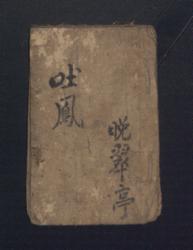 吐鳳
晩翠亭